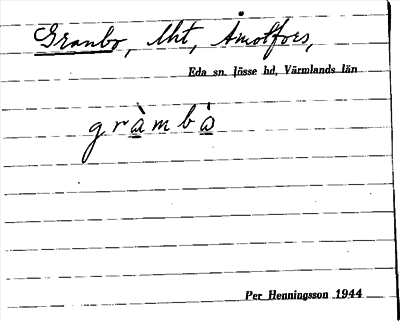 Granbo, lht, Åmotfors,
Eda sn. Jösse hd, Värmlands län
gràmbò
Per Henningsson 1944